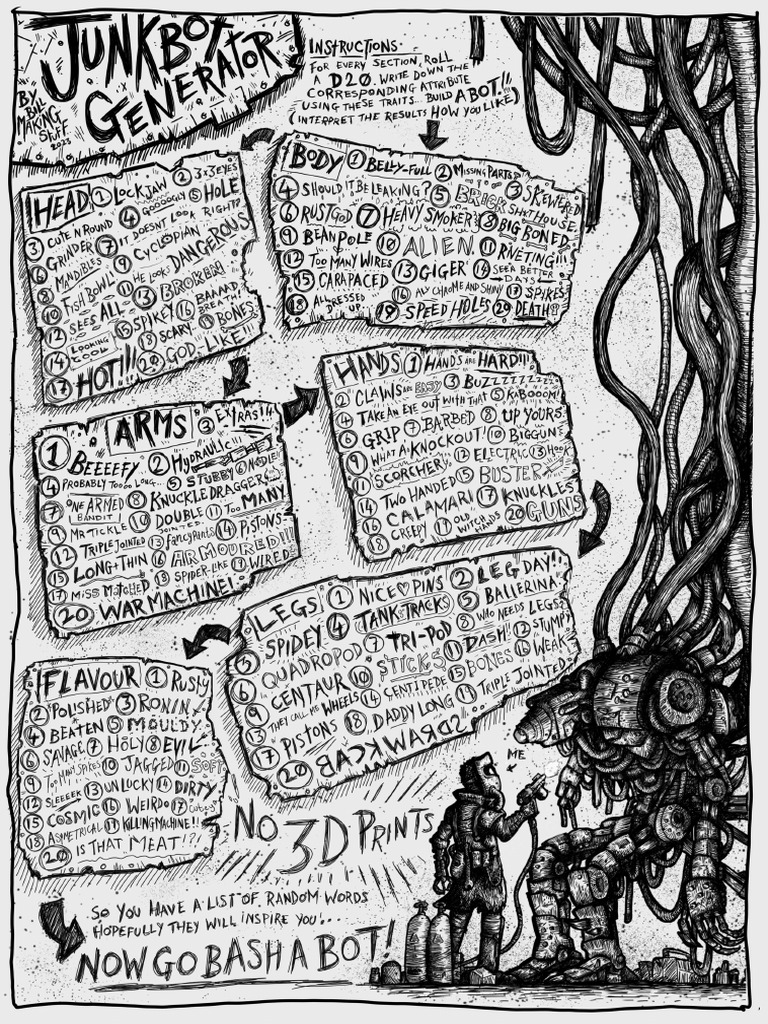 JUNKBOT
GENERATOR
BY
BILL
MAKING
STUFF
2023
INSTRUCTIONS.
FOR EVERY SECTION, ROLL
A D20. WRITE DOWN THE
CORRESPONDING ATTRIBUTE
USING THESE TRAITS... BUILD A BOT.!!
(INTERPRET THE RESULTS HOW YOU LIKE)
HEAD 1 LOCKJAW 2 3x3 EYES
3 CUTE N ROUND 4 GOOOOGLY 5 HOLE
6 GRINDER 7 IT DOESNT LOOK RIGHT
8 MANDIBLES 9 CYCLOPIAN
10 FISH BOWL 11 HE LOOKS DANGEROUS
12 SEES ALL 13 BROKEN
14 LOOKING COOL 15 SPIKEY 16 BAAAD BREATH!
17 HOT!!! 18 SCARY BONES
20 GOD-LIKE!!!
BODY 1 BELLY-FULL 2 MISSING PARTS
4 SHOULD IT BE LEAKING? 5 BRICK SHITHOUSE 3 SKEWERED
6 RUST GOD 7 HEAVY SMOKER 8 BIG BONED
9 BEAN POLE 10 ALIEN 11 RIVETING!!!
12 TOO MANY WIRES 13 GIGER 14 SEEN BETTER DAYS
15 CARAPACED 16 ALL CHROME AND SHINY 17 SPIKES
18 ALL DRESSED UP 19 SPEED HOLES 20 DEATH!!
ARMS 3 EXTRAS!
1 BEEEEFY 2 HYDRAULIC!!!
4 PROBABLY TOOO LONG... 5 STUBBY 6 NOODLE!
7 ONE ARMED BANDIT 8 KNUCKLE DRAGGER
9 MR TICKLE 10 DOUBLE JOINTED. 11 TOO MANY
12 TRIPLE JOINTED 13 FANCY PANTS 14 PISTONS
15 LONG+THIN 16 ARMOURED!!!
17 MISS MATCHED 18 SPIDER-LIKE 19 WIRED
20 WAR MACHINE!
HANDS 1 HANDS ARE HARD!!!
2 CLAWS ARE EASY 3 BUZZZZZZZZZ
4 TAKE AN EYE OUT WITH THAT 5 KABOOOM!
6 GRIP 7 BARBED 8 UP YOURS
9 WHAT A KNOCKOUT! 10 BIGGUNS
11 SCORCHER 12 ELECTRIC 13 HOOK
14 TWO HANDED 15 BUSTER
16 CALAMARI 17 KNUCKLES
18 GREEDY 19 OLD WITCH HANDS 20 GUNS
LEGS 1 NICE♡PINS 2 LEG DAY!!
3 SPIDEY 4 TANK-TRACKS 5 BALLERINA
6 QUADROPOD 7 TRI-POD 8 WHO NEEDS LEGS?
9 CENTAUR 10 STICKS 11 DASH!! 12 STUMPY
13 THEY CALL ME WHEELS 14 CENTIPEDE 15 BONES 16 WEAK
17 PISTONS 18 DADDY LONG 19 TRIPLE JOINTED
20 BACKWARDS
FLAVOUR 1 RUSTY
2 "POLISHED" 3 RONIN
4 BEATEN 5 MOULDY
6 SAVAGE 7 HOLY 8 EVIL
9 TOO MANY SPIKES 10 JAGGED 11 SOFT
12 SLEEEEK 13 UNLUCKY 14 DIRTY
15 COSMIC 16 WEIRDO 17 CUBES
18 ASYMETRICAL 19 KILLING MACHINE!!
20 IS THAT MEAT!?!
NO
3D PRINTS
ME
SO YOU HAVE A LIST OF RANDOM WORDS
HOPEFULLY THEY WILL INSPIRE YOU...
NOW GO BASH A BOT!